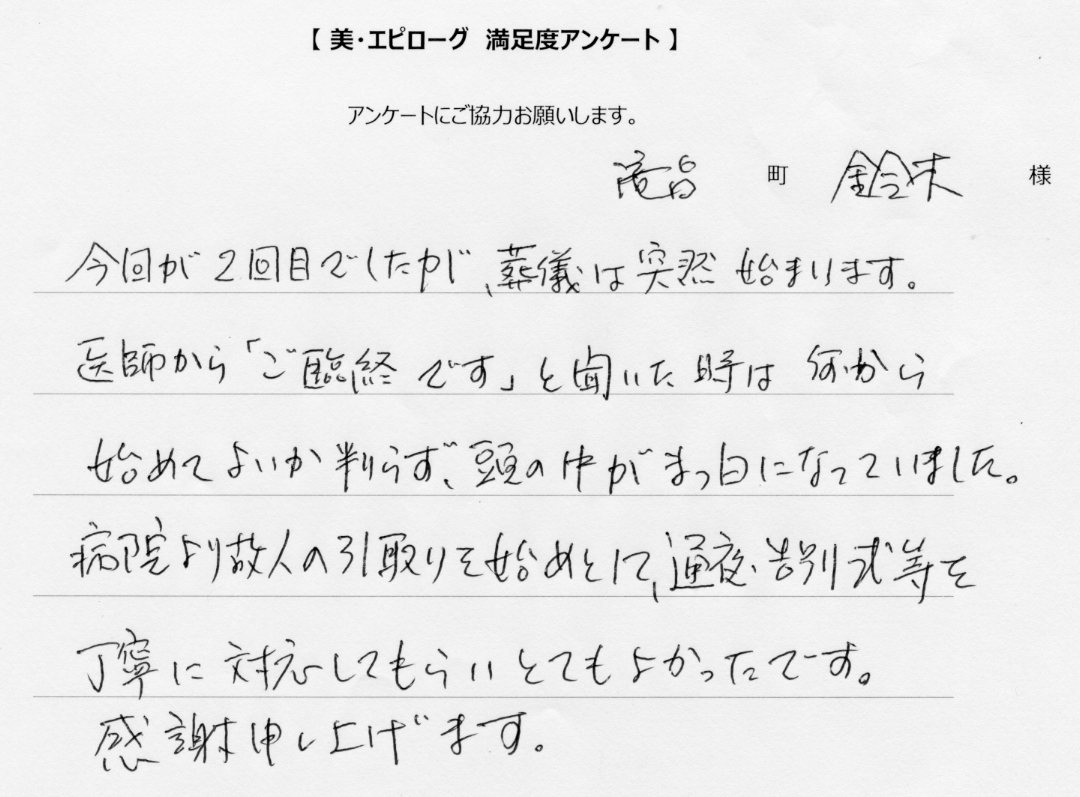 【 美・エピローグ 満足度アンケート 】
アンケートにご協力お願いします。
町 鈴木 様
今回が2回目でしたが、葬儀は突然始まります。
医師から「ご臨終です」と聞いた時は何から
始めてよいか判らず、頭の中がまっ白になっていました。
病院より故人の引取りを始めとして、通夜・告別式等を
丁寧に対応してもらいとてもよかったです。
感謝申し上げます。